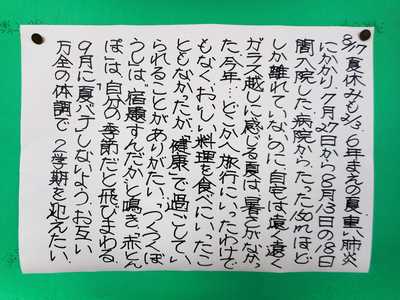 8/17 夏休みも2/3.6年まえの夏.重い肺炎
にかかり、7月27日から8月13日の18日
間入院した.病院から、たった150mほど
しか離れていないのに自宅は遠く遠く
ガラス越しに感じる夏は、暑くなかっ
た.今年…どこかへ旅行にいったわけで
もなく、おいしい料理を食べにいったこ
ともなかったが、「健康」で過ごしてい
られることがありがたい.「つくつくぼ
うし」は「宿題すんだか」と鳴き、「赤とん
ぼ」は、「自分の季節だ」と飛びまわる.
9月に夏バテしないよう、お互い
万全の体調で2学期を迎えたい.